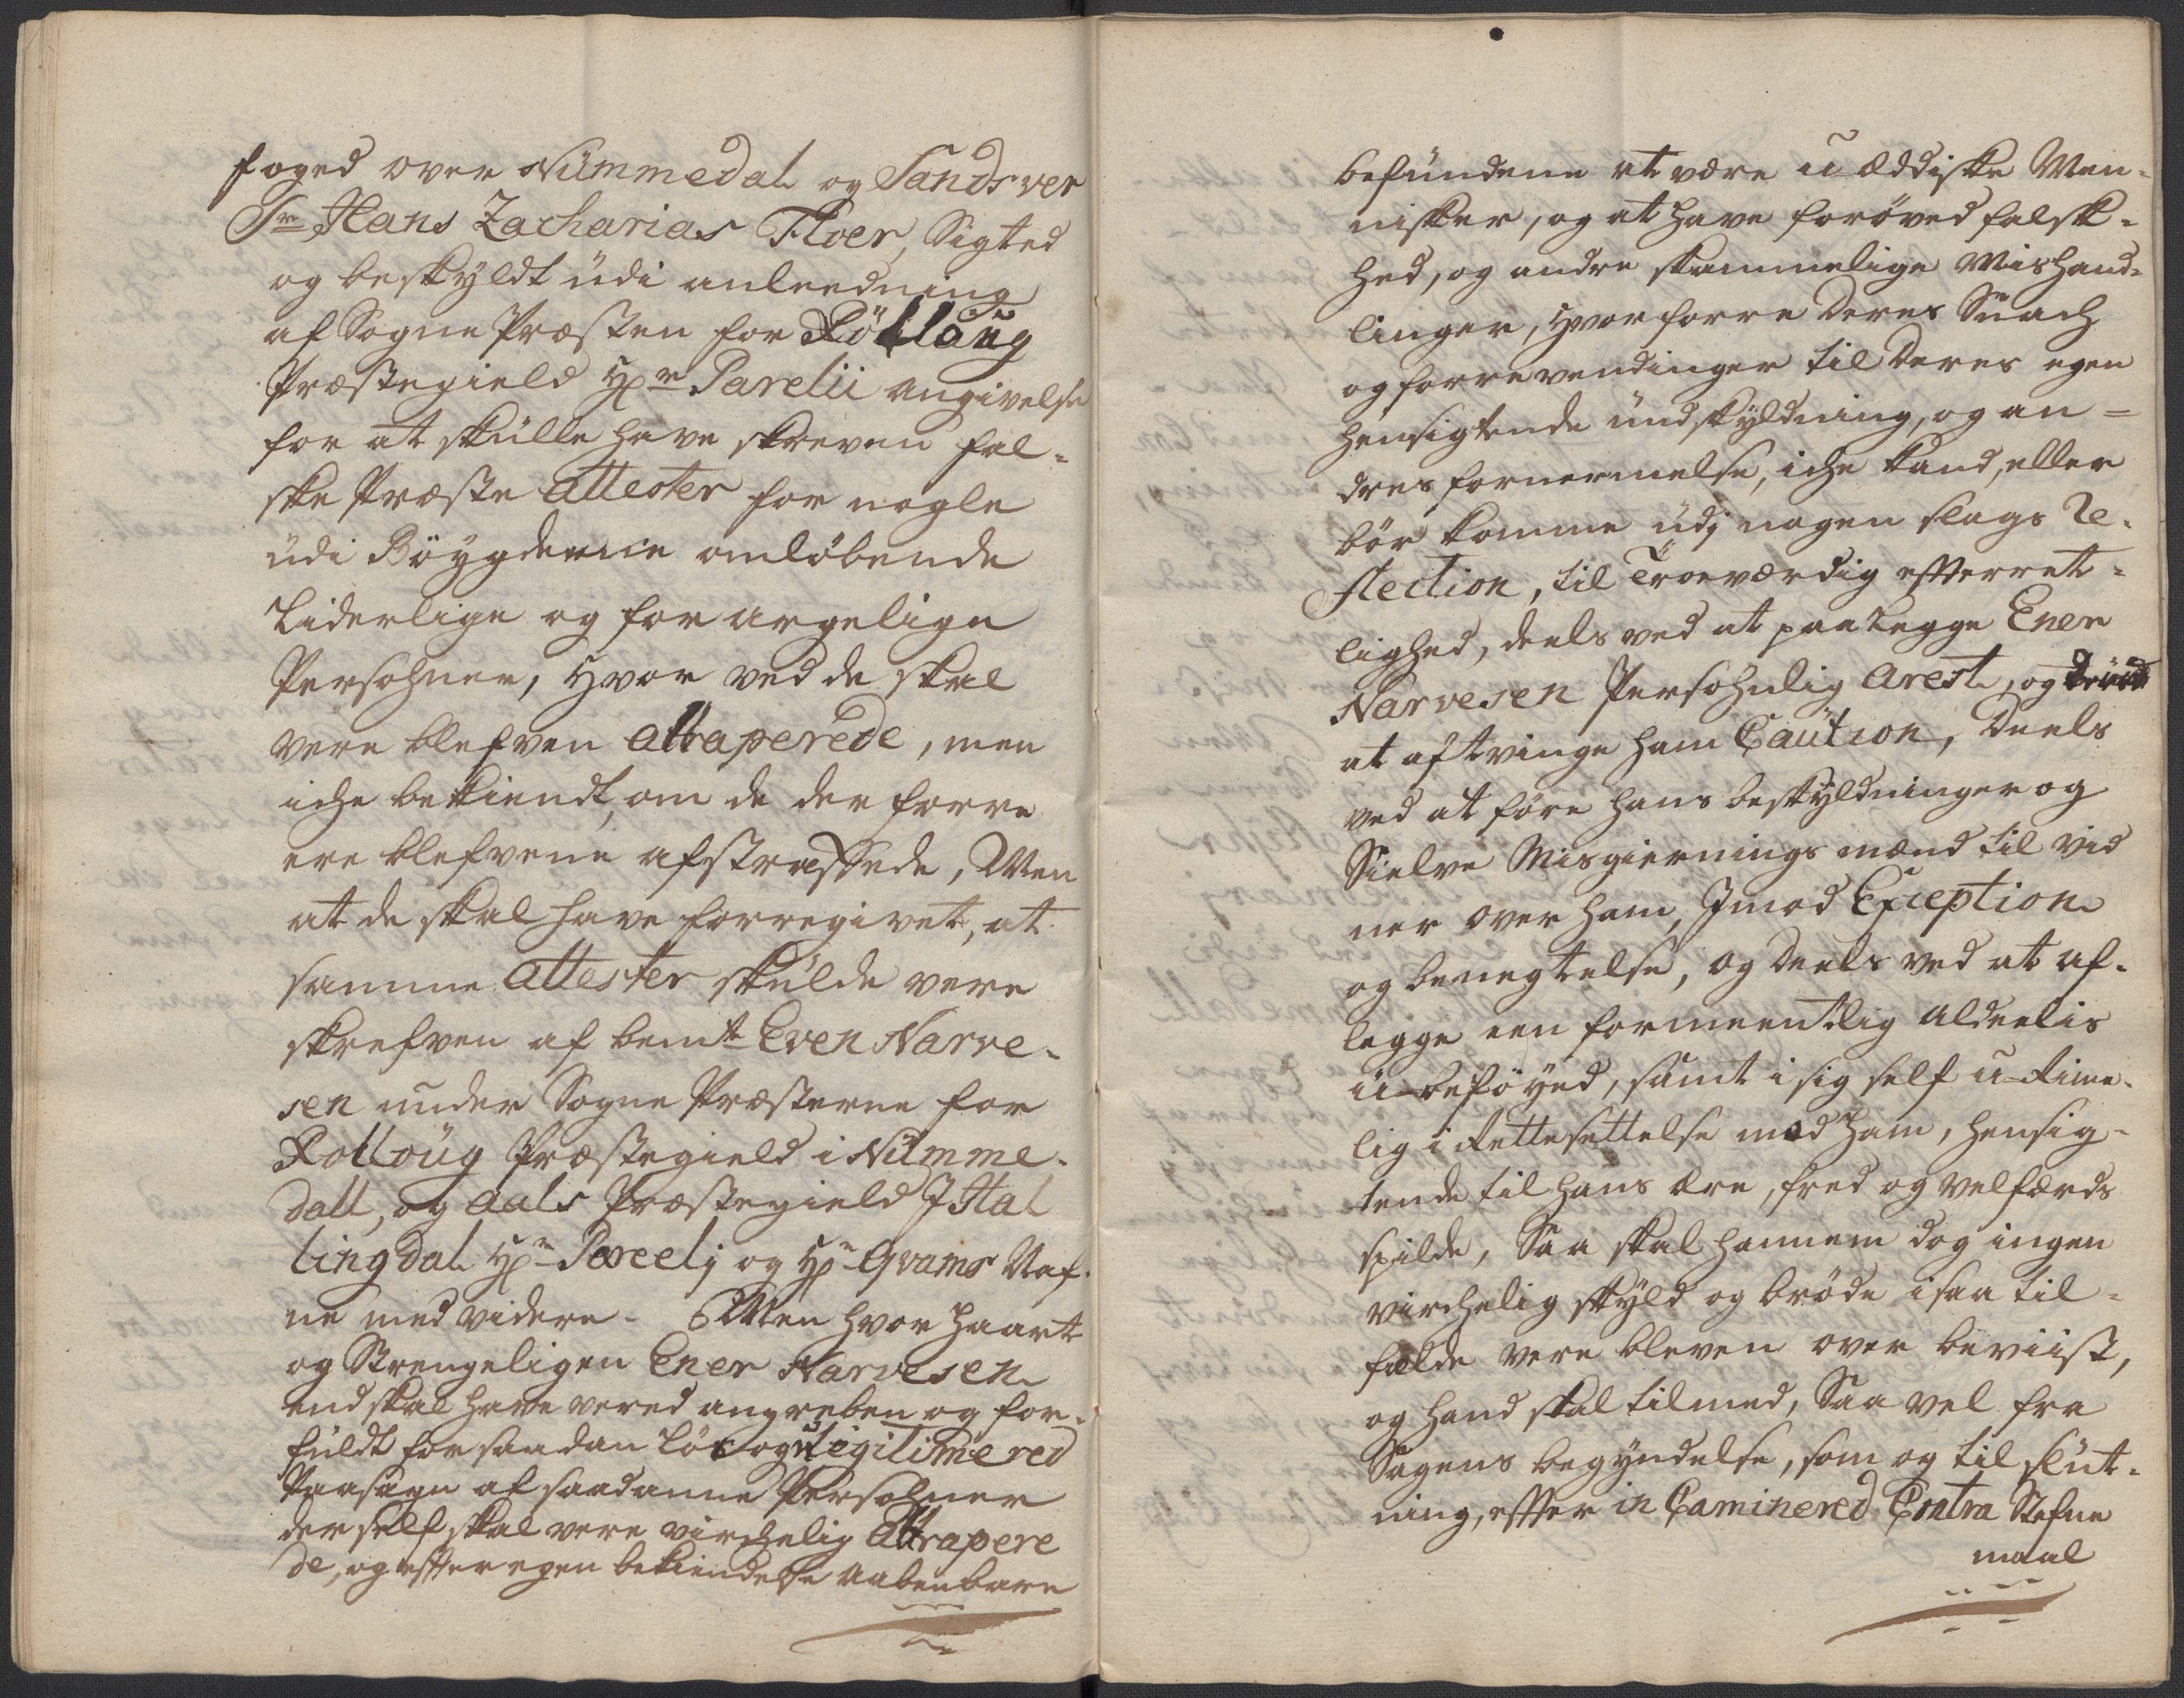 foged over Nümmedal og Sandsver
Sr Hans Zacharias Floer, Sigted
og beskyldt üdi anleedning
af Sogne Præsten for Röllaug
Præstegield Hr Parelii angivelse
for at skülle have skreven fal-
ske Præste attester for nogle
üdi Böygderne omløbende
Liderlige og for argelige
Persohner, Hvor ved de skal
vere blefven attraperede, men
iche bekiendt, om de der forre
ere blefvene afstraffede, Men
at de skal have forregivet, at
samme attester skülde vere
skrefven af bemte Even Narve-
sen under Sogne Præsterne for
Rolloüg Præstegield i Nümme-
dall, og Aals Præstegield J Hal
lingdal Hr Parelj og Hr Qvams Naf-
ne med videre. Men hvor haart
og Strengeligen Ener Narvesen
end skal have vered angreben og for-
füldt for saadan løs og ulegitimered
Paasagn af saadanne Persohner
der self skal vere virchelig attrapere
de, og efter egen bekiendelse aabenbare
befündene at være u-æddiske Men-
nisker, og at have forøved falsk-
hed, og andre skammelige Mishand-
linger, Hvorforre deres Snach
og forrevendinger til deres egen
hensigtende ündskyldning, og an-
dres fornermelse, iche kand, eller
bör komme üdj nogen slags Re-
flection, til Troeværdig efterret-
lighed, deels ved at paalegge Ener
Narvesen Persohnlig arest, og
at aftvinge ham Caution, Deels
ved at føre hans beskyldninger og
Sielve Misgiernings mænd til vid
ner over ham, Jmod Exception
og benegtelse, og deels ved at af-
legge een formeentlig aldeelis
u-beføyed, samt i sig self u-Rime-
lig i Rettesettelse mod ham, hensig-
tende til hans ære, fred og velfærds
spilde, Saa skal hannem dog ingen
virchelig skyld og brøde i saa til-
fælde vere bleven over beviist,
og hand skal tilmed, Saa vel fra
Sagens begyndelse, som og til slüt-
ning, efter in Caminered Contra Stefne
maal